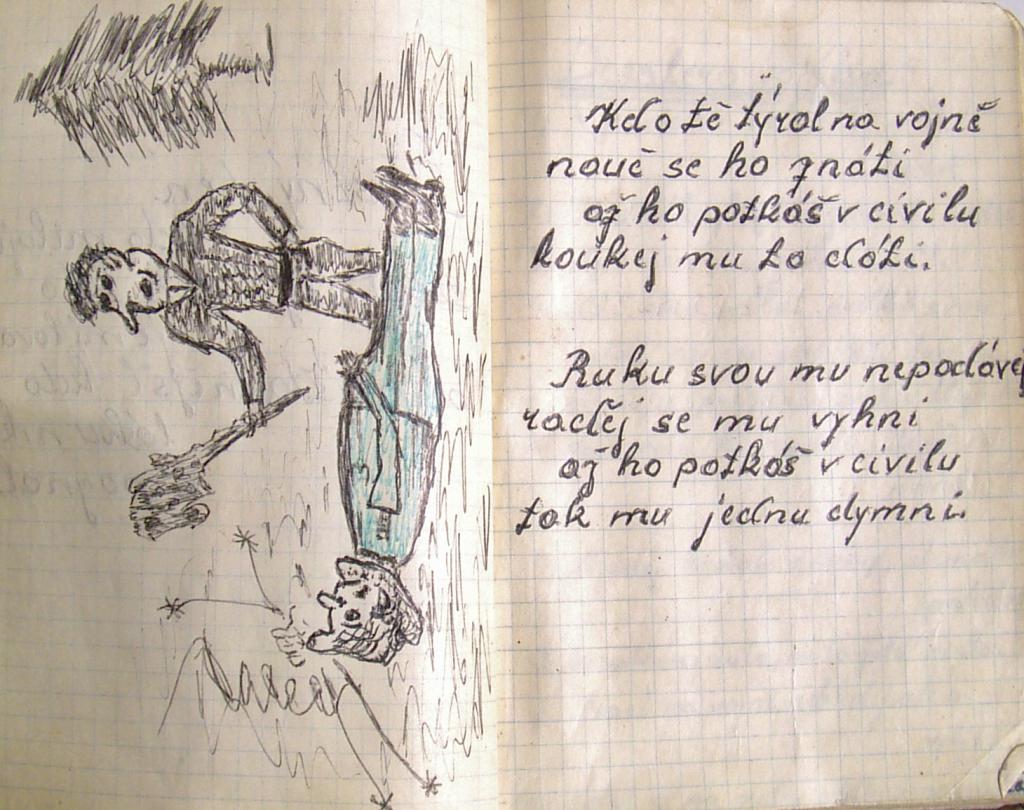 Kdo tě týral na vojně
nauč se ho znáti
až ho potkáš v civilu
koukej mu to dáti.
Ruku svou mu nepodávej
raděj se mu vyhni
až ho potkáš v civilu
tak mu jednu dymni.